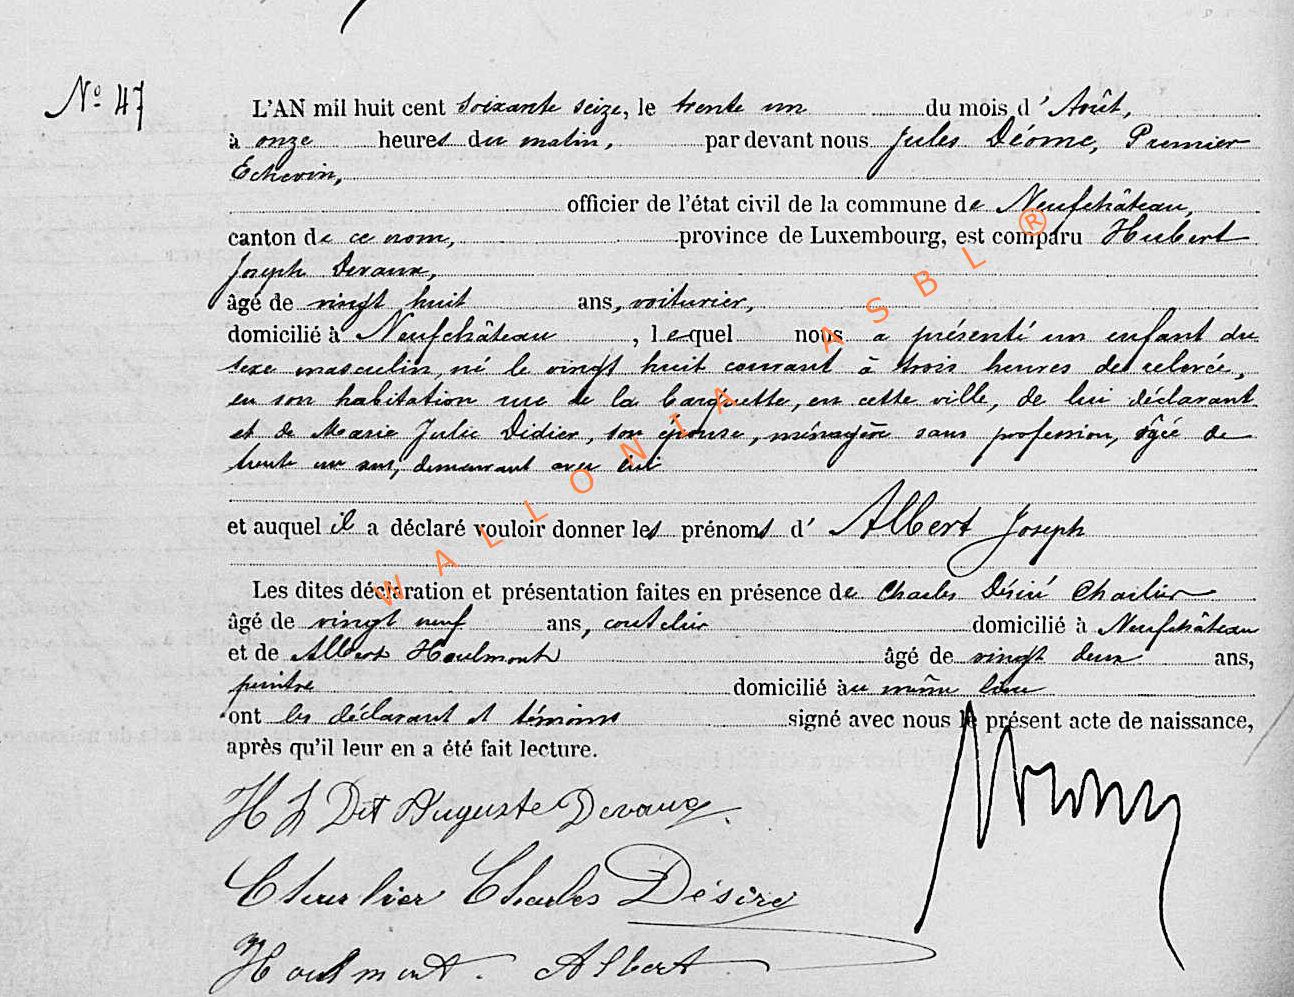 N° 47
L'AN mil huit cent soixante seize, le trente un du mois d'Août,
à onze heures du matin, par devant nous Jules Déome, Premier
Echevin,
officier de l'état civil de la commune de Neufchâteau,
canton de ce nom, province de Luxembourg, est comparu Hubert
Joseph Devaux,
âgé de vingt huit ans, voiturier,
domicilié à Neufchâteau, lequel nous a présenté un enfant du
sexe masculin, né le vingt huit courant à trois heures de relevée,
en son habitation rue de la en cette ville, de lui déclarant
et de Marie Julie Didier, son épouse, ménagère sans profession, âgée de
trente un ans, demeurant avec lui
et auquel il a déclaré vouloir donner les prénoms d'Albert Joseph
Les dites déclaration et présentation faites en présence de Charles Désiré Charlier
âgé de vingt neuf ans, coutelier domicilié à Neufchâteau
et de Albert Houlmont âgé de vingt deux ans,
peintre domicilié au même lieu
ont les déclarant et témoins signé avec nous le présent acte de naissance,
après qu'il leur en a été fait lecture.
H J Dit Auguste Devaux.
Charlier Charles Désiré
Houlmont. Albert.
WALLONIA ASBL ®